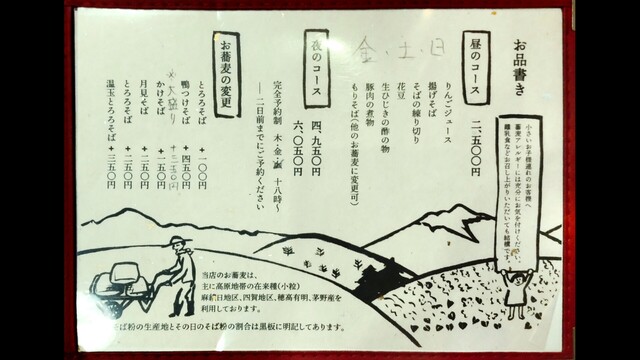 お品書き
小さいお子様連れのお客様へ
蕎麦アレルギーには充分にお気を付けください。
離乳食などお召し上がりいただいても結構です。
昼のコース
二、五〇〇円
りんごジュース
揚げそば
そばの練り切り
花豆
生ひじきの酢の物
豚肉の煮物
もりそば(他のお蕎麦に変更可)
金・土・日
夜のコース
四、九五〇円
六、〇五〇円
完全予約制 木・金・ 十八時〜
――二日前までにご予約ください
お蕎麦の変更
とろろそば +一〇〇円
鴨つけそば +四五〇円
※大盛り +三五〇円
かけそば +一五〇円
月見そば +二五〇円
とろろそば +二五〇円
温玉とろろそば +三五〇円
当店のお蕎麦は、
主に高原地帯の在来種(小粒)
麻績日地区、四賀地区、穂高有明、茅野産を
利用しております。
そば粉の生産地とその日のそば粉の割合は黒板に明記してあります。